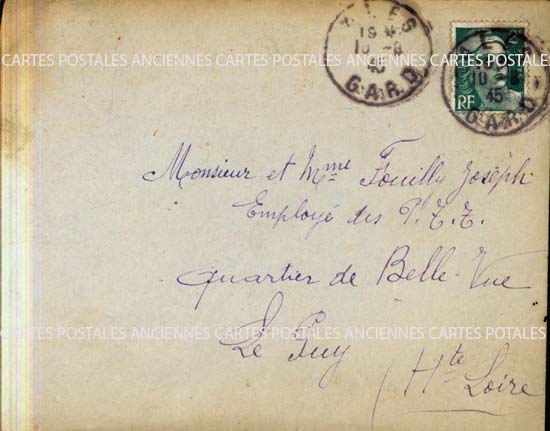 ALES
19 *
10 - 8
45
GARD
2F
RF
ALES
10 - 8
45
GARD
CARTES POSTALES ANCIENNES CARTES POSTALES ANCIENNES CARTES POTALES
Monsieur et Mme Fouilly Joseph
Employé des P.T.T.
quartier de Belle-Vue
CARTES POSTALES ANCIENNES CARTES POSTALES ANCIENNES CARTES POTALES
Le Puy
(Hte Loire